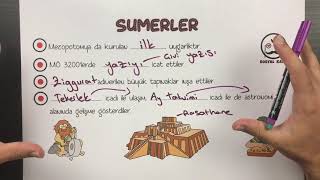 SÜMERLER
Mezopotamya da kurulan ilk uygarlıktır.
Çivi yazısı
MÖ 3200lerde yazıyı icat ettiler.
Ziggurat adıverilen büyük tapınaklar inşa ettiler.
Tekerlek icadı ile ulaşım, Ay takvimi icadı ile de astronomi
alanında gelişme gösterdiler.
Rasathane